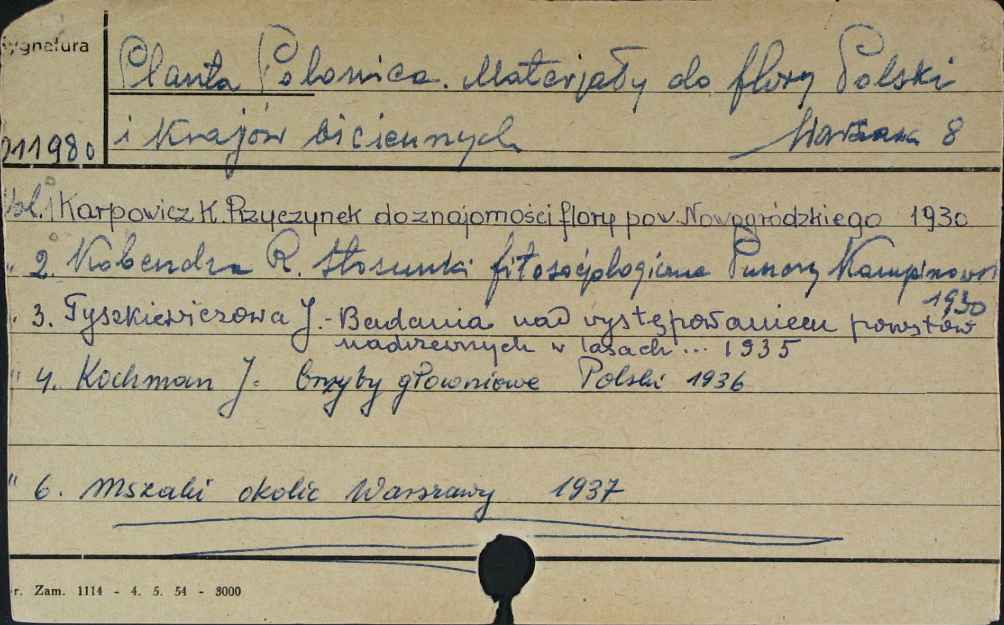 Sygnatura
Planta Polonica. Materjały do flory Polski
i Krajów ościennych Warszawa 8
211980
Vol. 1 Karpowicz K. Przyczynek do znajomości flory pow. Nowogródzkiego 1930
" 2. Kobendza R. Stosunki fitosocjologiczne Puszczy Kampinowsk
1930
" 3. Tyszkiewiczowa J. - Badania nad występowaniem porostów
nadrzewnych w lasach... 1935
" 4. Kochman J. Grzyby głowniowe Polski 1936
" 6. Mszaki okolic Warszawy 1937
r. Zam. 1114 - 4. 5. 54 - 3000